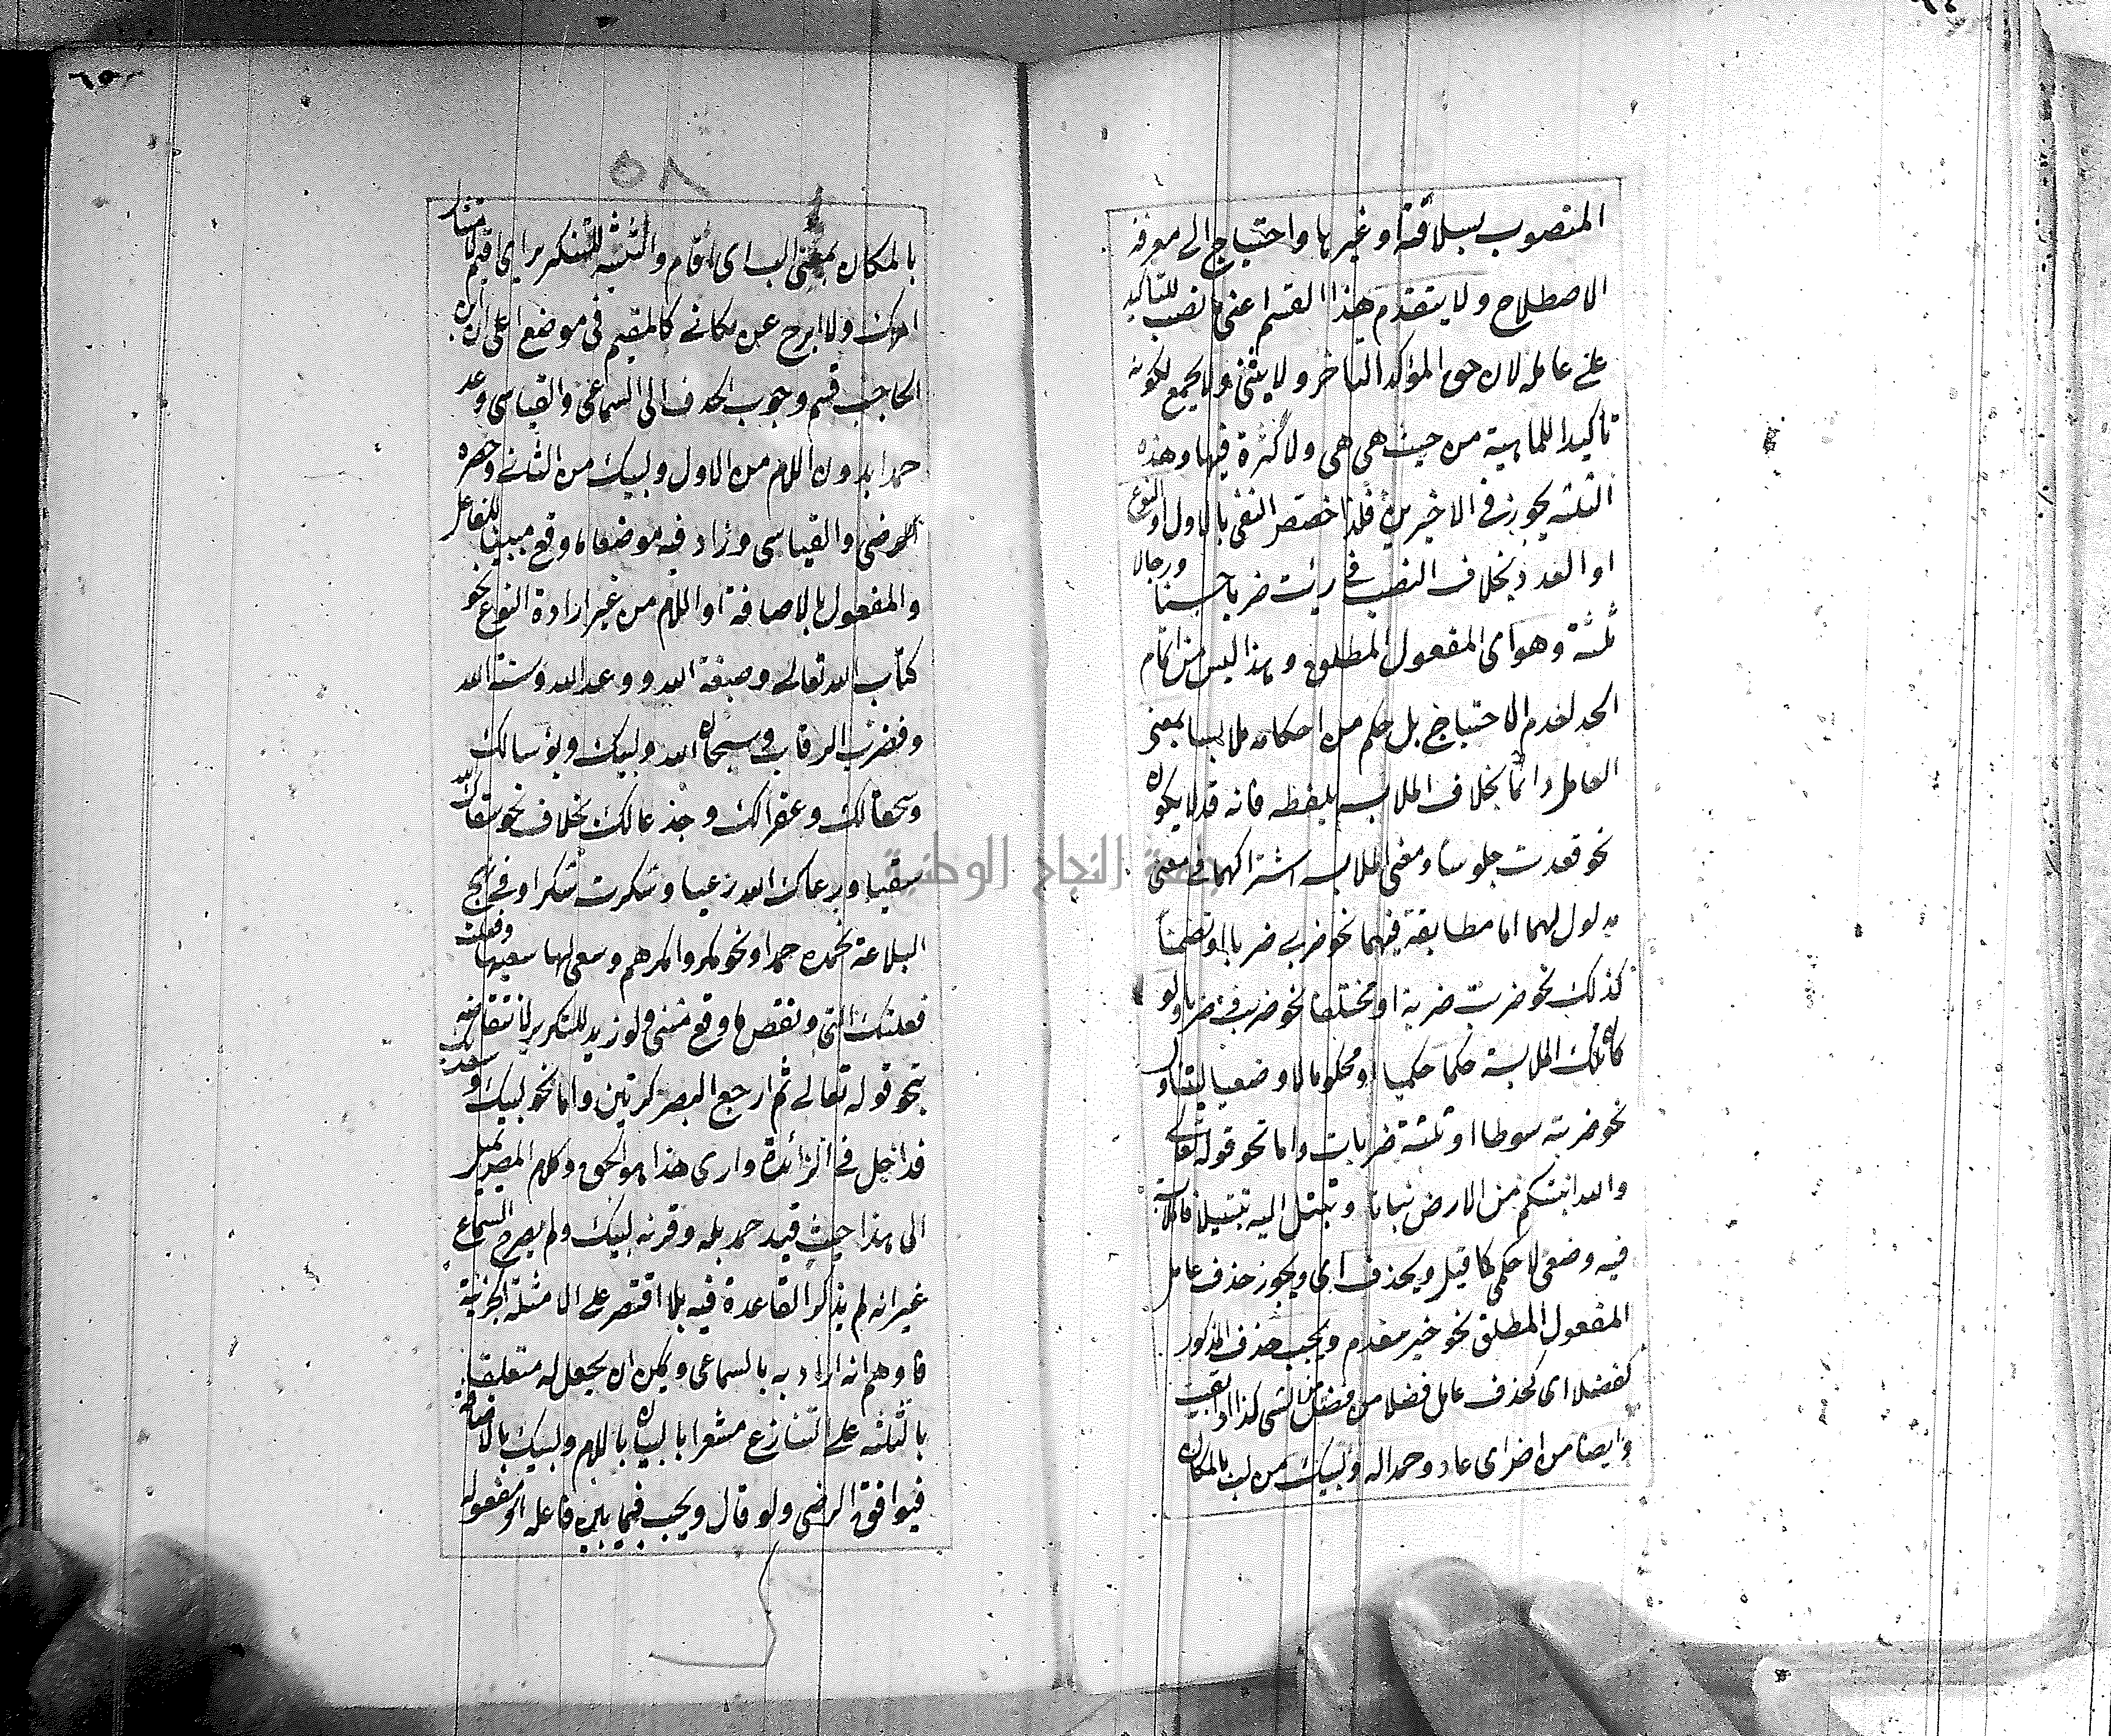 المنصوب بسلاقة او غيرها واحتياج الى معرفة
الاصطلاح ولا يتقدم هذا القسم اعنى ما نصب للتأكيد
على عامله لان حق المؤكد التأخر ولا يثنى ولا يجمع لكونه
تأكيدا للماهية من حيث هى هى ولا كثرة فيها وهذه
الثلثة يجوز فى الاخيرين فلذا اختص النفى بالاول او النوع
او العدد بخلاف النصب فى رئت ضربا حسنا ورجالا
ثلثة وهو اى المفعول المطلق وهذا ليس من تمام
الحد لعدم الاحتياج بل حكم من احكامه ملابسا بمعنى
العامل دائما بخلاف الملابسة بلفظه فانه قد لا يكون
نحو قعدت جلوسا ومعنى الملابسة اشتراكهما فى معنى
مدلول لهما اما مطابقة فيهما نحو ضربى ضربا او تضمنا
كذلك نحو ضربت ضربة او مختلفا نحو ضربت ضربا ولو
كان تلك الملابسة حكما حكميا او محكوما لا وضعيا
نحو ضربته سوطا او ثلثة ضربات واما نحو قوله تعالى
والله انبتكم من الارض نباتا وتبتل اليه تبتيلا فالملابسة
فيه وضعى لا حكمى كما قيل ويحذف اى ويجوز حذف عامل
المفعول المطلق نحو خير مقدم ويجب حذف المذكور
كفضلا اى كحذف عامل فضلا من فضل من الشى كذا اذا بقيت
وايضا من اض اى عاد وحمدا له ولبيك من لب بالمكان
٦٥
٥٨
بالمكان بمعنى الب اى اقام والتثنية للتكرير اى اقيم
ولا ابرح عن مكانى كالمقيم فى موضع اعلم ان ابن
الحاجب قسم وجوب الحذف الى السماعى والقياسى وعد
حمدا بدون اللام من الاول ولبيك من الثانى وحصره
الرضى والقياسى وزاد فيه موضعا ما وقع مبينا للفاعل
والمفعول بالاضافة او اللام من غير ارادة النوع نحو
كتاب الله تعالى وصبغة الله ووعد الله وسنة الله
وفضرب الرقاب وسبحان الله ولبيك وبؤسا لك
وسحقا لك وعقرا لك وجذعا لك بخلاف نحو سقاك الله
سقيا ورعاك الله رعيا وشكرت شكرا وفى نهج
البلاغة نحمده حمدا ونحو مكروا مكرهم وسعى لها سعيها وفعلت
فعلتك التى ونقص ما وقع مثنى ولو زيد للتكرير لانتقاضه
بنحو قوله تعالى ثم ارجع البصر كرتين واما نحو لبيك وسعديك
فداخل فى الزائدة وارى هذا هو الحق وكلام المص يميل
الى هذا حيث قيد حمد بله وقرنه لبيك ولم يصرح السماع
غير انه لم يذكر القاعدة فيه بل اقتصر على الامثلة الجزئية
فاوهم انه اراد به بالسماعى ويمكن ان يجعل له متعلقا
بالثلثة على التنازع مشعرا بالبيان باللام ولبيك بالاضافة
فيوافق الرضى ولو قال ويجب فيما بين فاعله او مفعوله
جامعة النجاح الوطنية